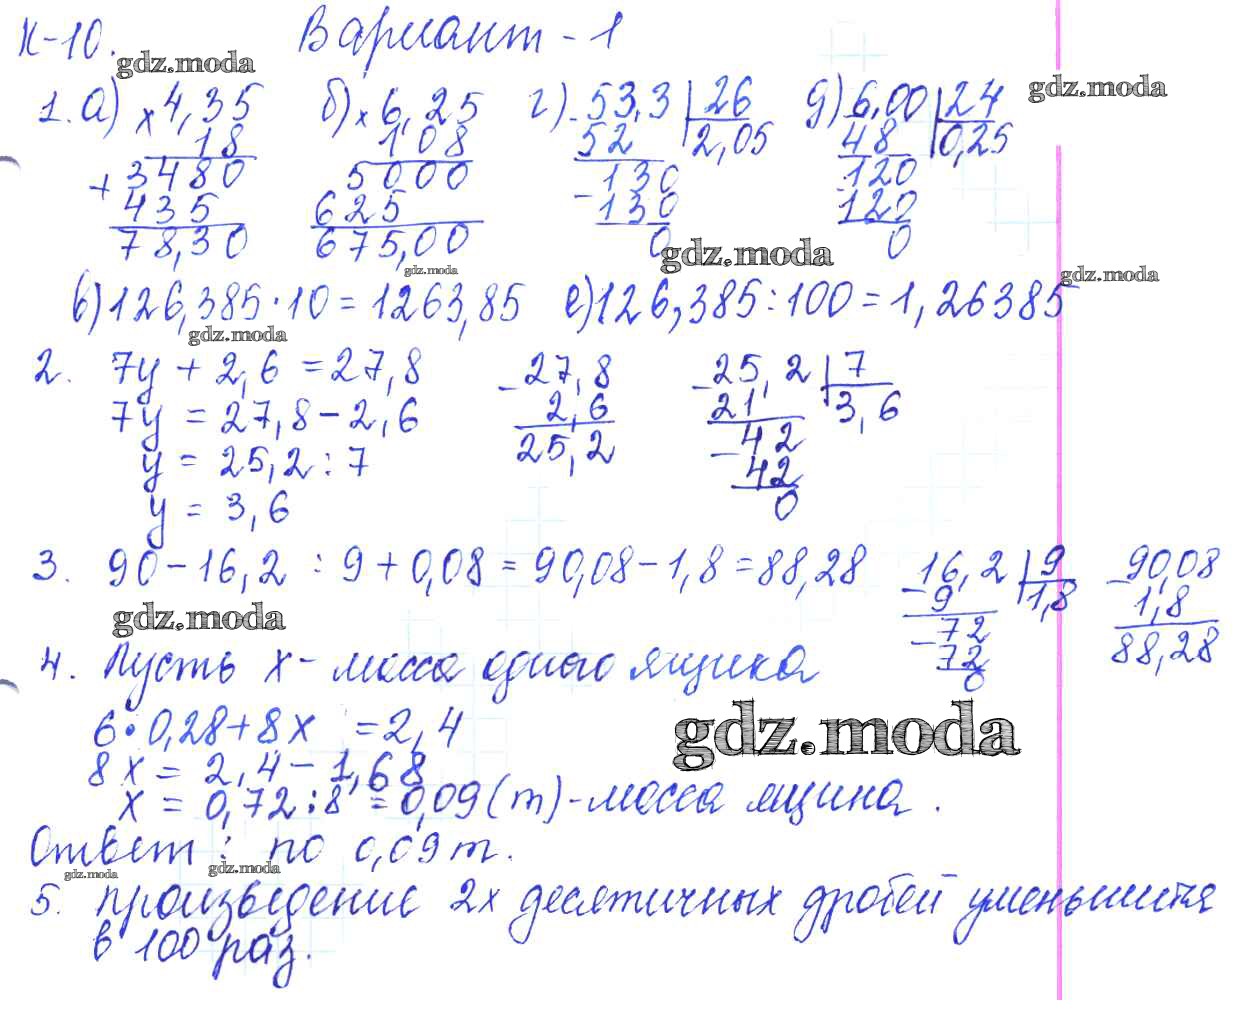 К-10. Вариант - 1
gdz.moda
gdz.moda
1. а) × 4,35 б) × 6,25 г) - 53,3 | 26 д) 6,00 | 24
18 108 52 2,05 48 0,25
+ 3480 5000 130 120
435 625 - 130 120
78,30 675,00 0 0
gdz.moda
gdz.moda
gdz.moda
в) 126,385 · 10 = 1263,85 е) 126,385 : 100 = 1,26385
gdz.moda
2. 7y + 2,6 = 27,8 - 27,8 - 25,2 | 7
7y = 27,8 - 2,6 2,6 21 3,6
y = 25,2 : 7 25,2 - 42
y = 3,6 42
0
3. 90 - 16,2 : 9 + 0,08 = 90,08 - 1,8 = 88,28 - 16,2 | 9 - 90,08
gdz.moda 9 1,8 1,8
- 72 88,28
72
0
4. Пусть x - масса одного ящика
6 · 0,28 + 8x = 2,4
gdz.moda
8x = 2,4 - 1,68
x = 0,72 : 8 = 0,09 (т) - масса ящика.
Ответ: по 0,09 т.
gdz.moda
gdz.moda
5. произведение 2х десятичных дробей уменьшится
в 100 раз.